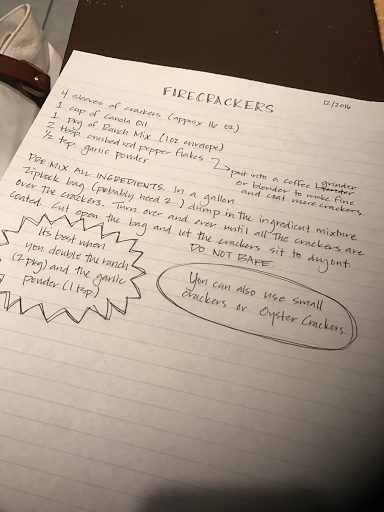 FIRECRACKERS
12/2016
4 sleeves of crackers (approx 16 oz)
1 cup of Canola Oil
1 pkg of Ranch Mix (1oz envelope)
2 tbsp. crushed red pepper flakes
½ tsp. garlic powder
put into a coffee grinder
or blender to make fine
and coat more crackers.
PREMIX ALL INGREDIENTS. In a gallon
Ziplock bag (probably need 2..) dump in the ingredient mixture
over the crackers. Turn over and over until all the crackers are
coated. Cut open the bag and let the crackers sit to dry out.
DO NOT BAKE.
It's best when
you double the ranch
(2 pkg) and the garlic
powder (1 tsp)
You can also use small
crackers or Oyster Crackers.